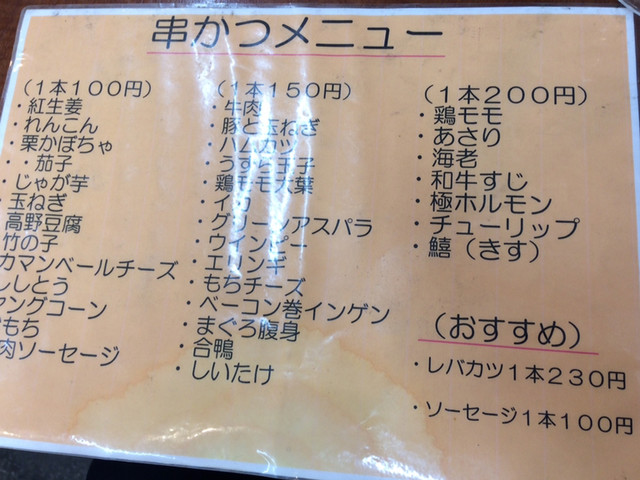 串かつメニュー
(1本100円)
・紅生姜
・れんこん
・栗かぼちゃ
・・茄子
・じゃが芋
・玉ねぎ
高野豆腐
竹の子
カマンベールチーズ
ししとう
ヤングコーン
もち
肉ソーセージ
(1本150円)
・牛肉
・豚と玉ねぎ
・ハムカツ
・うずら玉子
・鶏モモ大葉
・イカ
・グリーンアスパラ
・ウインピー
・エリンギ
・もちチーズ
・ベーコン巻インゲン
・まぐろ腹身
・合鴨
・しいたけ
(1本200円)
・鶏モモ
・あさり
・海老
・和牛すじ
・極ホルモン
・チューリップ
・鱚(きす)
(おすすめ)
・レバカツ1本230円
・ソーセージ1本100円